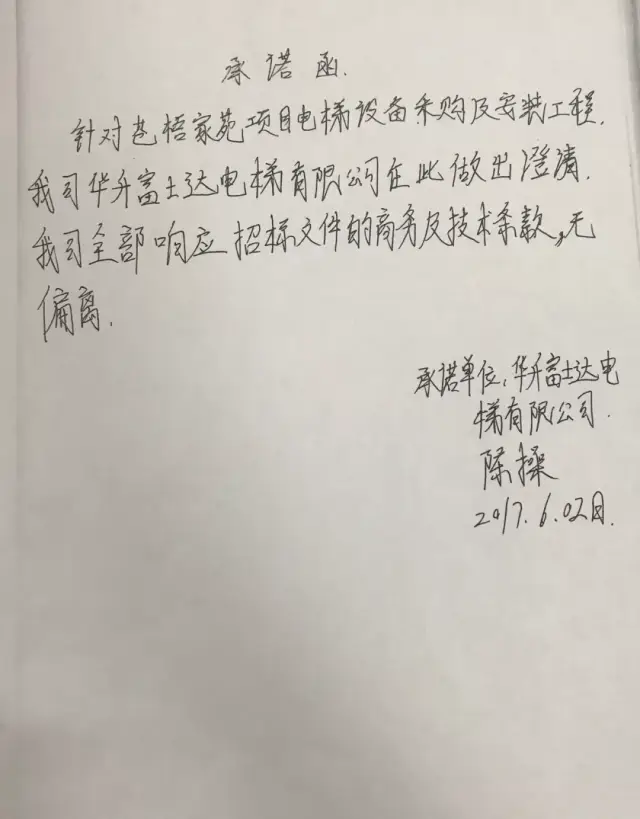 承诺函.
针对苍梧家苑项目电梯设备采购及安装工程.
我司华升富士达电梯有限公司在此做出澄清.
我司全部响应招标文件的商务及技术条款,无
偏离.
承诺单位:华升富士达电
梯有限公司.
陈操
2017.6.02日.